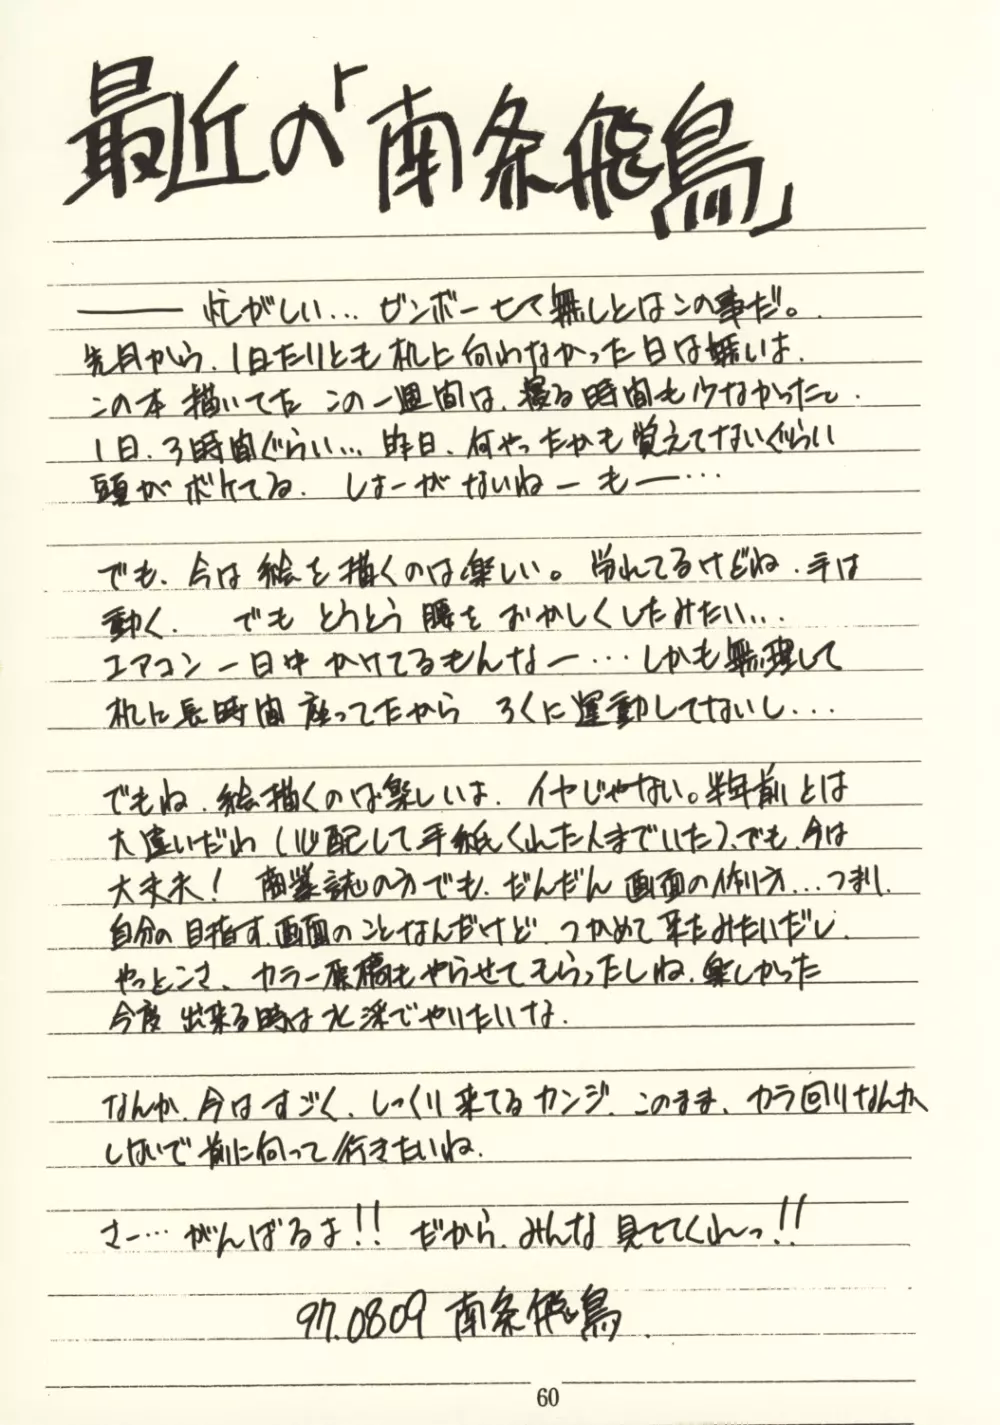 最近の「南条飛鳥」
―― 忙がしい… ビンボー七て無しとはこの事だ。
先月から、1日たりとも机に向わなかった日は無いよ、
この本描いてた この一週間は、寝る時間も少なかったし、
1日、3時間ぐらい… 昨日、何やったかも覚えてないぐらい
頭がボケてる。 しょーがないねー もー…
でも、今は絵を描くのは楽しい。 労れてるけどね、手は
動く。 でも とうとう 腰を おかしくしたみたい…
エアコン 一日中 かけてるもんなー… しかも無理して
机に長時間 座ってたから ろくに運動してないし…
でもね、絵描くのは楽しいよ、イヤじゃない。半年前とは
大違いだわ(心配して手紙くれた人までいた)、でも、今は
大丈夫! 商業誌の方でも、だんだん 画面の作り方…つまり、
自分の目指す、画面のことなんだけど、つかめて来たみたいだし、
やっとこさ、カラー原稿もやらせてもらったしね、楽しかった
今度 出来る時は水彩でやりたいな。
なんか、今はすごく、しっくり来てるカンジ、このまま、カラ回りなんか
しないで前に向って行きたいね。
さー… がんばるよ!! だから、みんな見ててくれっ!!
97.0809 南条飛鳥.
60